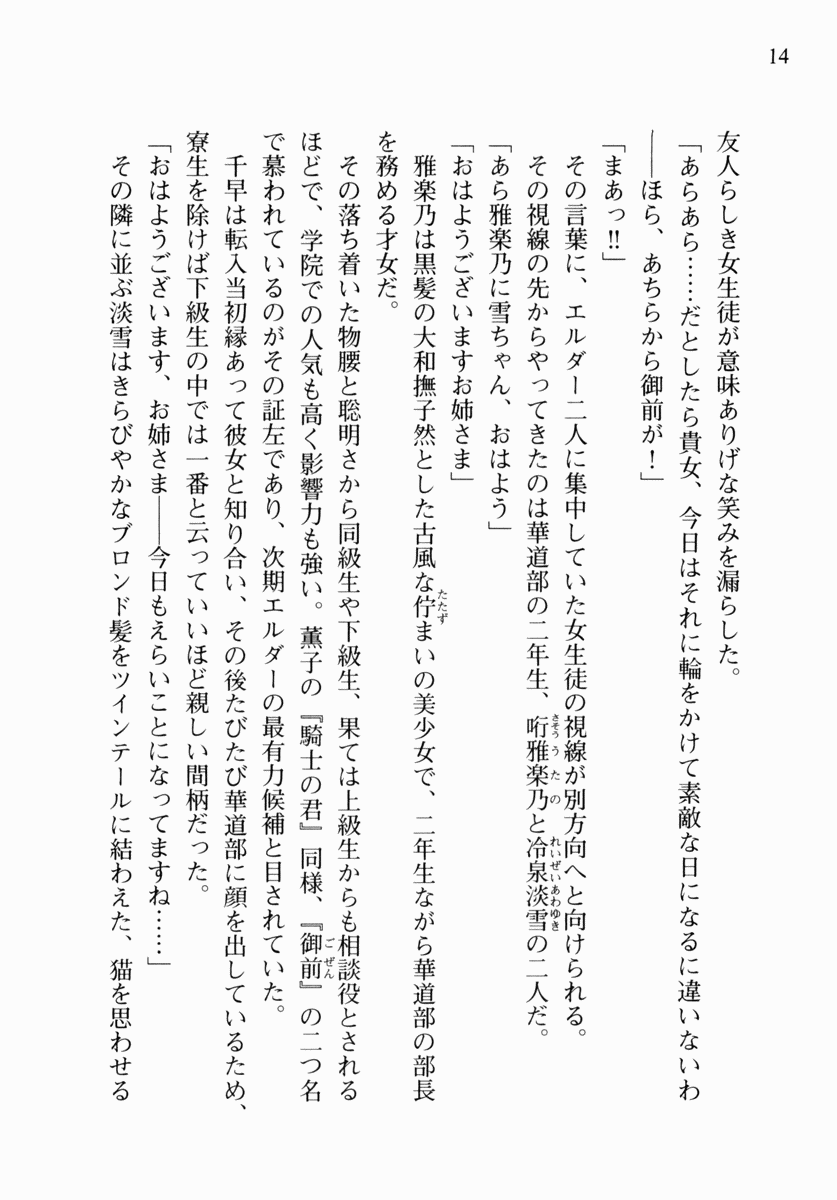 14
友人らしき女生徒が意味ありげな笑みを漏らした。
「あらあら……だとしたら貴女、今日はそれに輪をかけて素敵な日になるに違いないわ
――ほら、あちらから御前が！」
「まあっ!!」
その言葉に、エルダー二人に集中していた女生徒の視線が別方向へと向けられる。
その視線の先からやってきたのは華道部の二年生、哘雅楽乃と冷泉淡雪の二人だ。
「あら雅楽乃に雪ちゃん、おはよう」
「おはようございますお姉さま」
雅楽乃は黒髪の大和撫子然とした古風な佇まいの美少女で、二年生ながら華道部の部長
を務める才女だ。
その落ち着いた物腰と聡明さから同級生や下級生、果ては上級生からも相談役とされる
ほどで、学院での人気も高く影響力も強い。薫子の『騎士の君』同様、『御前』の二つ名
で慕われているのがその証左であり、次期エルダーの最有力候補と目されていた。
千早は転入当初縁あって彼女と知り合い、その後たびたび華道部に顔を出しているため、
寮生を除けば下級生の中では一番と云っていいほど親しい間柄だった。
「おはようございます、お姉さま――今日もえらいことになってますね……」
その隣に並ぶ淡雪はきらびやかなブロンド髪をツインテールに結わえた、猫を思わせる